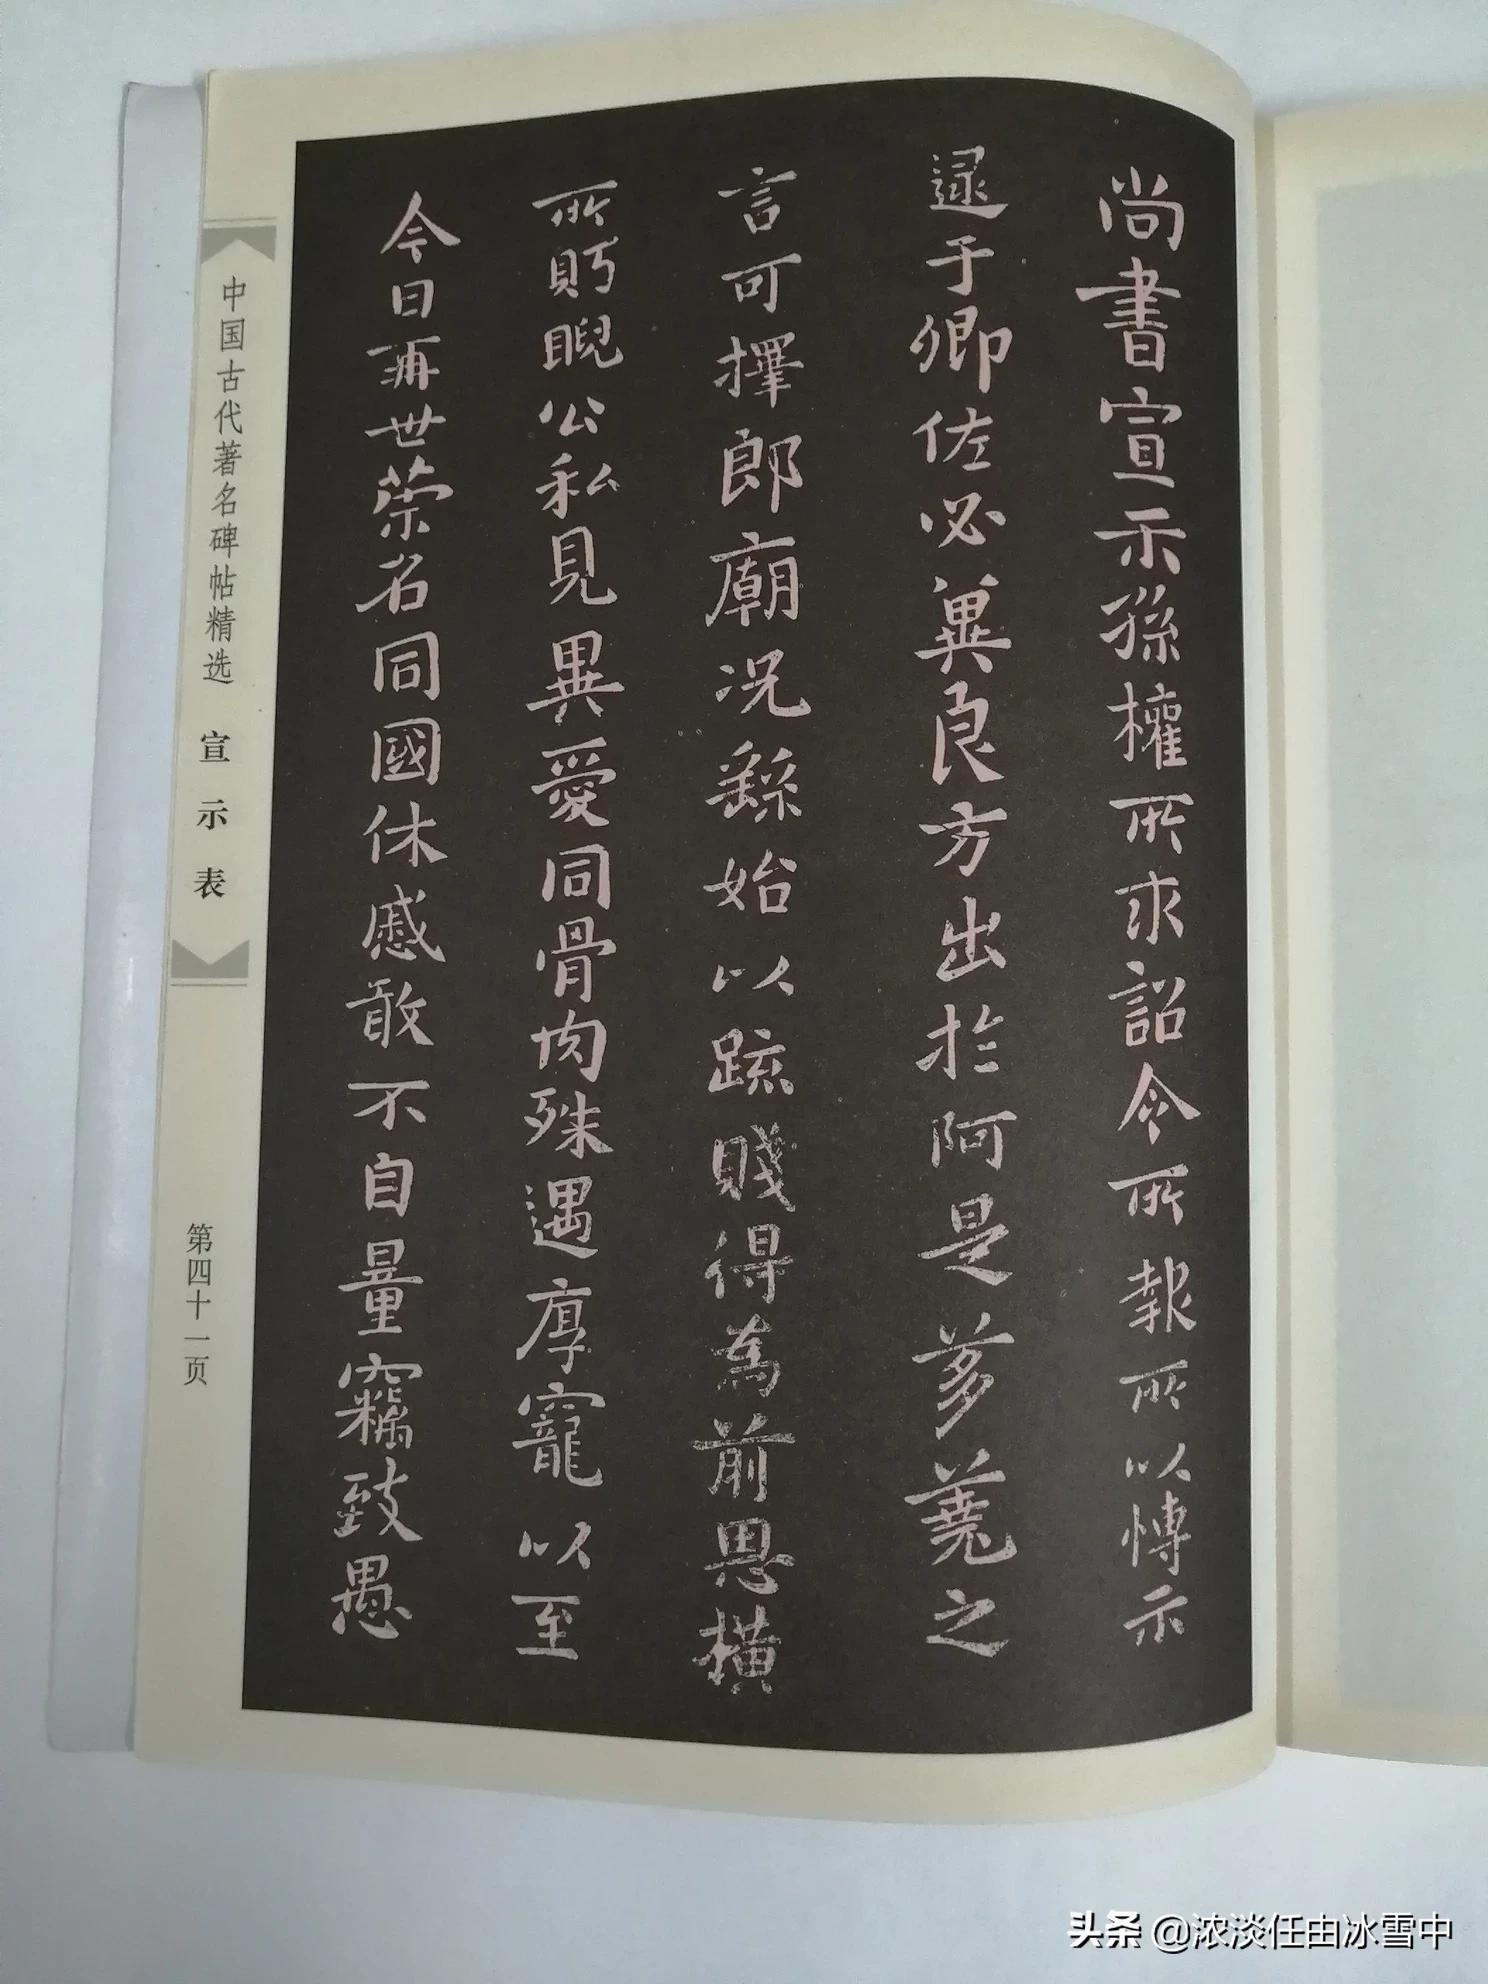 尚書宣示孫權所求詔令所報所以博示
逮于卿佐必冀良方出於阿是芻蕘之
言可擇郎廟況繇始以疏賤得為前恩橫
所盻睨公私見異愛同骨肉殊遇厚寵以至
今日再世榮名同國休慼敢不自量竊致愚
中国古代著名碑帖精选 宣示表
第四十一页
头条 @浓淡任由冰雪中